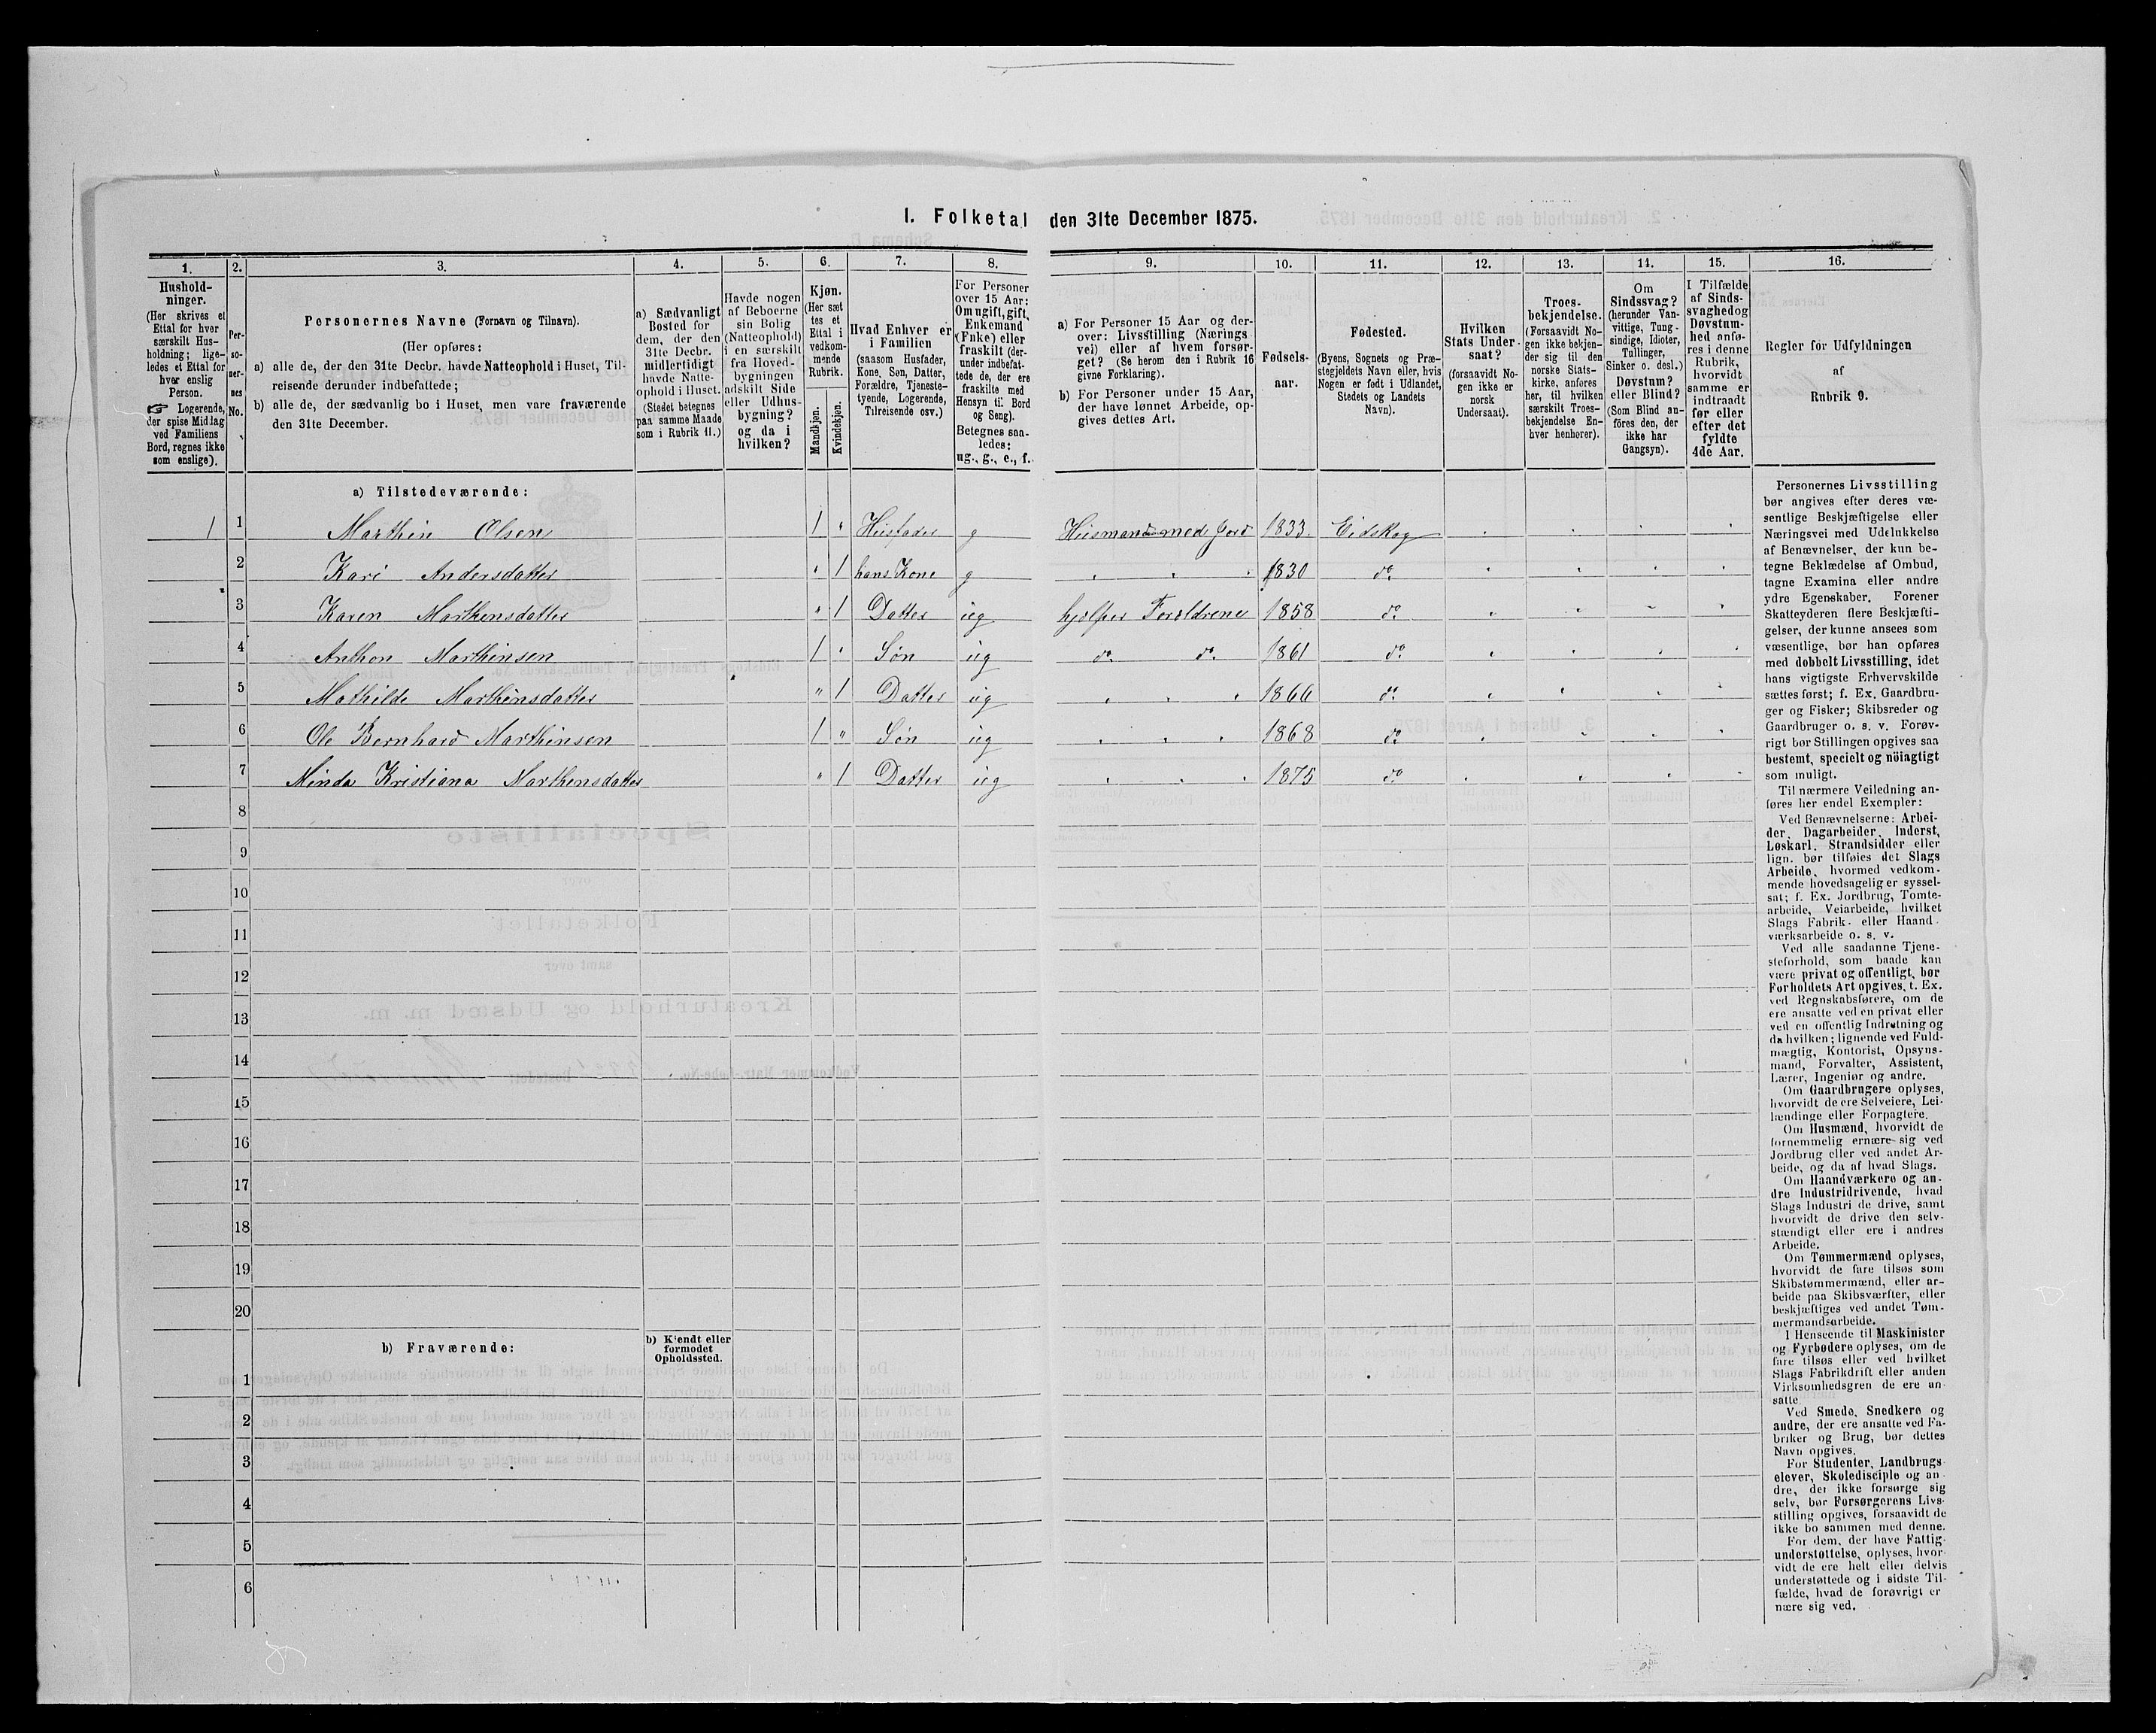 I. Folketal den 31te December 1875.
1. 2. 3. 4. 5. 6. 7. 8. 9. 10. 11. 12. 13. 14. 15. 16.
Hushold-
ninger.
(Her skrives et
Ettal for hver
særskilt Hus-
holdning; lige-
ledes et Ettal for
hver enslig
Person.
☞ Logerende,
der spise Middag
ved Familiens
Bord, regnes ikke
som enslige).
Per-
so-
ner-
nes
No.
Personernes Navne (Fornavn og Tilnavn).
(Her opføres:
a) alle de, der den 31te Decbr. havde Natteophold i Huset, Til-
reisende derunder indbefattede;
b) alle de, der sædvanlig bo i Huset, men vare fraværende
den 31te December.
a) Sædvanligt
Bosted for
dem, der den
31te Decbr.
midlertidigt
havde Natte-
ophold i Huset.
(Stedet betegnes
paa samme Maade
som i Rubrik 11.)
Havde nogen
af Beboerne
sin Bolig
(Natteophold)
i en særskilt
fra Hoved-
bygningen
adskilt Side
eller Udhus-
bygning?
og da i
hvilken?
Kjøn.
(Her sæt
tes et
Ettal i
vedkom-
mende
Rubrik.
Mandkjøn.
Kvindekjøn.
Hvad Enhver er
i Familien
(saasom Husfader,
Kone, Søn, Datter,
Forældre, Tjeneste-
tyende, Logerende,
Tilreisende osv.)
For Personer
over 15 Aar:
Om ugift, gift,
Enkemand
(Enke) eller
fraskilt (der-
under indbefat-
tede de, der ere
fraskilte med
Hensyn til Bord
og Seng).
Betegnes saa-
ledes:
ug., g., e., f.
a) For Personer 15 Aar og der-
over: Livsstilling (Nærings
vei) eller af hvem forsør-
get? (Se herom den i Rubrik 16
givne Forklaring).
b) For Personer under 15 Aar,
der have lønnet Arbeide, op-
gives dettes Art.
Fødsels-
aar.
Fødested.
(Byens, Sognets og Præ-
stegjeldets Navn eller, hvis
Nogen er født i Udlandet,
Stedets og Landets
Navn).
Hvilken
Stats Under-
saat?
(forsaavidt No-
gen ikke er
norsk
Undersaat).
Troes-
bekjendelse.
(Forsaavidt No-
gen ikke bekjen-
der sig til den
norske Stats-
kirke, anføres
her, til hvilken
særskilt Troes-
bekjendelse En-
hver henhører).
Om
Sindssvag?
(herunder Van-
vittige, Tung-
sindige, Idioter,
Tullinger,
Sinker o. desl.)
Døvstum?
eller Blind?
(Som Blind an-
føres den, der
ikke har
Gangsyn).
I Tilfælde
af Sinds-
svaghed og
Døvstum-
hed anfø-
res i denne
Rubrik,
hvorvidt
samme er
indtraadt
før eller
efter det
fyldte
4de Aar.
Regler for Udfyldningen
af
Rubrik 9.
a) Tilstedeværende:
1 1 Marthin Olsen 1 Husfader g Husmand med Jord 1833 Eidskog
2 Kari Andersdatter 1 hans Kone g 1830 do
3 Karen Marthensdatter 1 Datter ug hjelper Forældrene 1858 do
4 Anthon Marthinsen 1 Søn ug do do 1861 do
5 Mathilde Marthinsdatter 1 Datter ug 1866 do
6 Ole Bernhard Marthinsen 1 Søn ug 1868 do
7 Minda Kristiana Marthensdatter 1 Datter ug 1875 do
8
9
10
11
12
13
14
15
16
17
18
19
20
b) Fraværende: b) Kjendt eller
formodet
Opholdssted.
1
2
3
4
5
6
Personernes Livsstilling
bør angives efter deres væ-
sentlige Beskjæftigelse eller
Næringsvei med Udelukkelse
af Benævnelser, der kun be-
tegne Beklædelse af Ombud,
tagne Examina eller andre
ydre Egenskaber. Forener
Skatteyderen flere Beskjæfti-
gelser, der kunne ansees som
væsentlige, bør han opføres
med dobbelt Livsstilling, idet
hans vigtigste Erhvervskilde
sættes først; f. Ex. Gaardbru-
ger og Fisker; Skibsreder og
Gaardbruger o. s. v. Forøv-
rigt bør Stillingen opgives saa
bestemt, specielt og nöiagtigt
som muligt.
Til nærmere Veiledning an-
føres her endel Exempler:
Ved Benævnelserne: Arbei-
der, Dagarbeider, Inderst,
Løskarl, Strandsidder eller
lign. bør tilføies det Slags
Arbeide, hvormed vedkom-
mende hovedsagelig er syssel-
sat; f. Ex. Jordbrug, Tomte-
arbeide, Veiarbeide, hvilket
Slags Fabrik- eller Haand-
værksarbeide o. s. v.
Ved alle saadanne Tjene-
steforhold, som baade kan
være privat og offentligt, bør
Forholdets Art opgives, t. Ex.
ved Regnskabsførere, om de
ere ansatte ved en privat eller
ved en offentlig Indretning og
da hvilken; lignende ved Fuld-
mægtig, Kontorist, Opsyns-
mand, Forvalter, Assistent,
Lærer, Ingeniør og andre.
Om Gaardbrugere oplyses,
hvorvidt de ere Selveiere, Lei-
lændinge eller Forpagtere.
Om Husmænd, hvorvidt de
fornemmelig ernære sig ved
Jordbrug eller ved andet Ar-
beide, og da af hvad Slags.
Om Haandværkere og an-
dre Industridrivende, hvad
Slags Industri de drive, samt
hvorvidt de drive den selv-
stændigt eller ere i andres
Arbeide.
Om Tømmermænd oplyses,
hvorvidt de fare tilsøs som
Skibstømmermænd, eller ar-
beide paa Skibsværfter, eller
beskjæftiges ved andet Tøm-
mermandsarbeide.
I Henseende til Maskinister
og Fyrbødere oplyses, om de
fare tilsøs eller ved hvilket
Slags Fabrikdrift eller anden
Virksomhedsgren de ere an-
satte.
Ved Smede, Snedkere og
andre, der ere ansatte ved Fa-
briker og Brug, bør dettes
Navn opgives.
For Studenter, Landbrugs
elever, Skoledisciple og an-
dre, der ikke forsørge sig
selv, bør Forsørgerens Livs-
stilling opgives, forsaavidt de
ikke bo sammen med denne.
For dem, der have Fattig-
understøttelse, oplyses, hvor-
vidt de ere helt eller delvis
understøttede og i sidste Til-
fælde, hvad de forøvrigt er
nære sig ved.